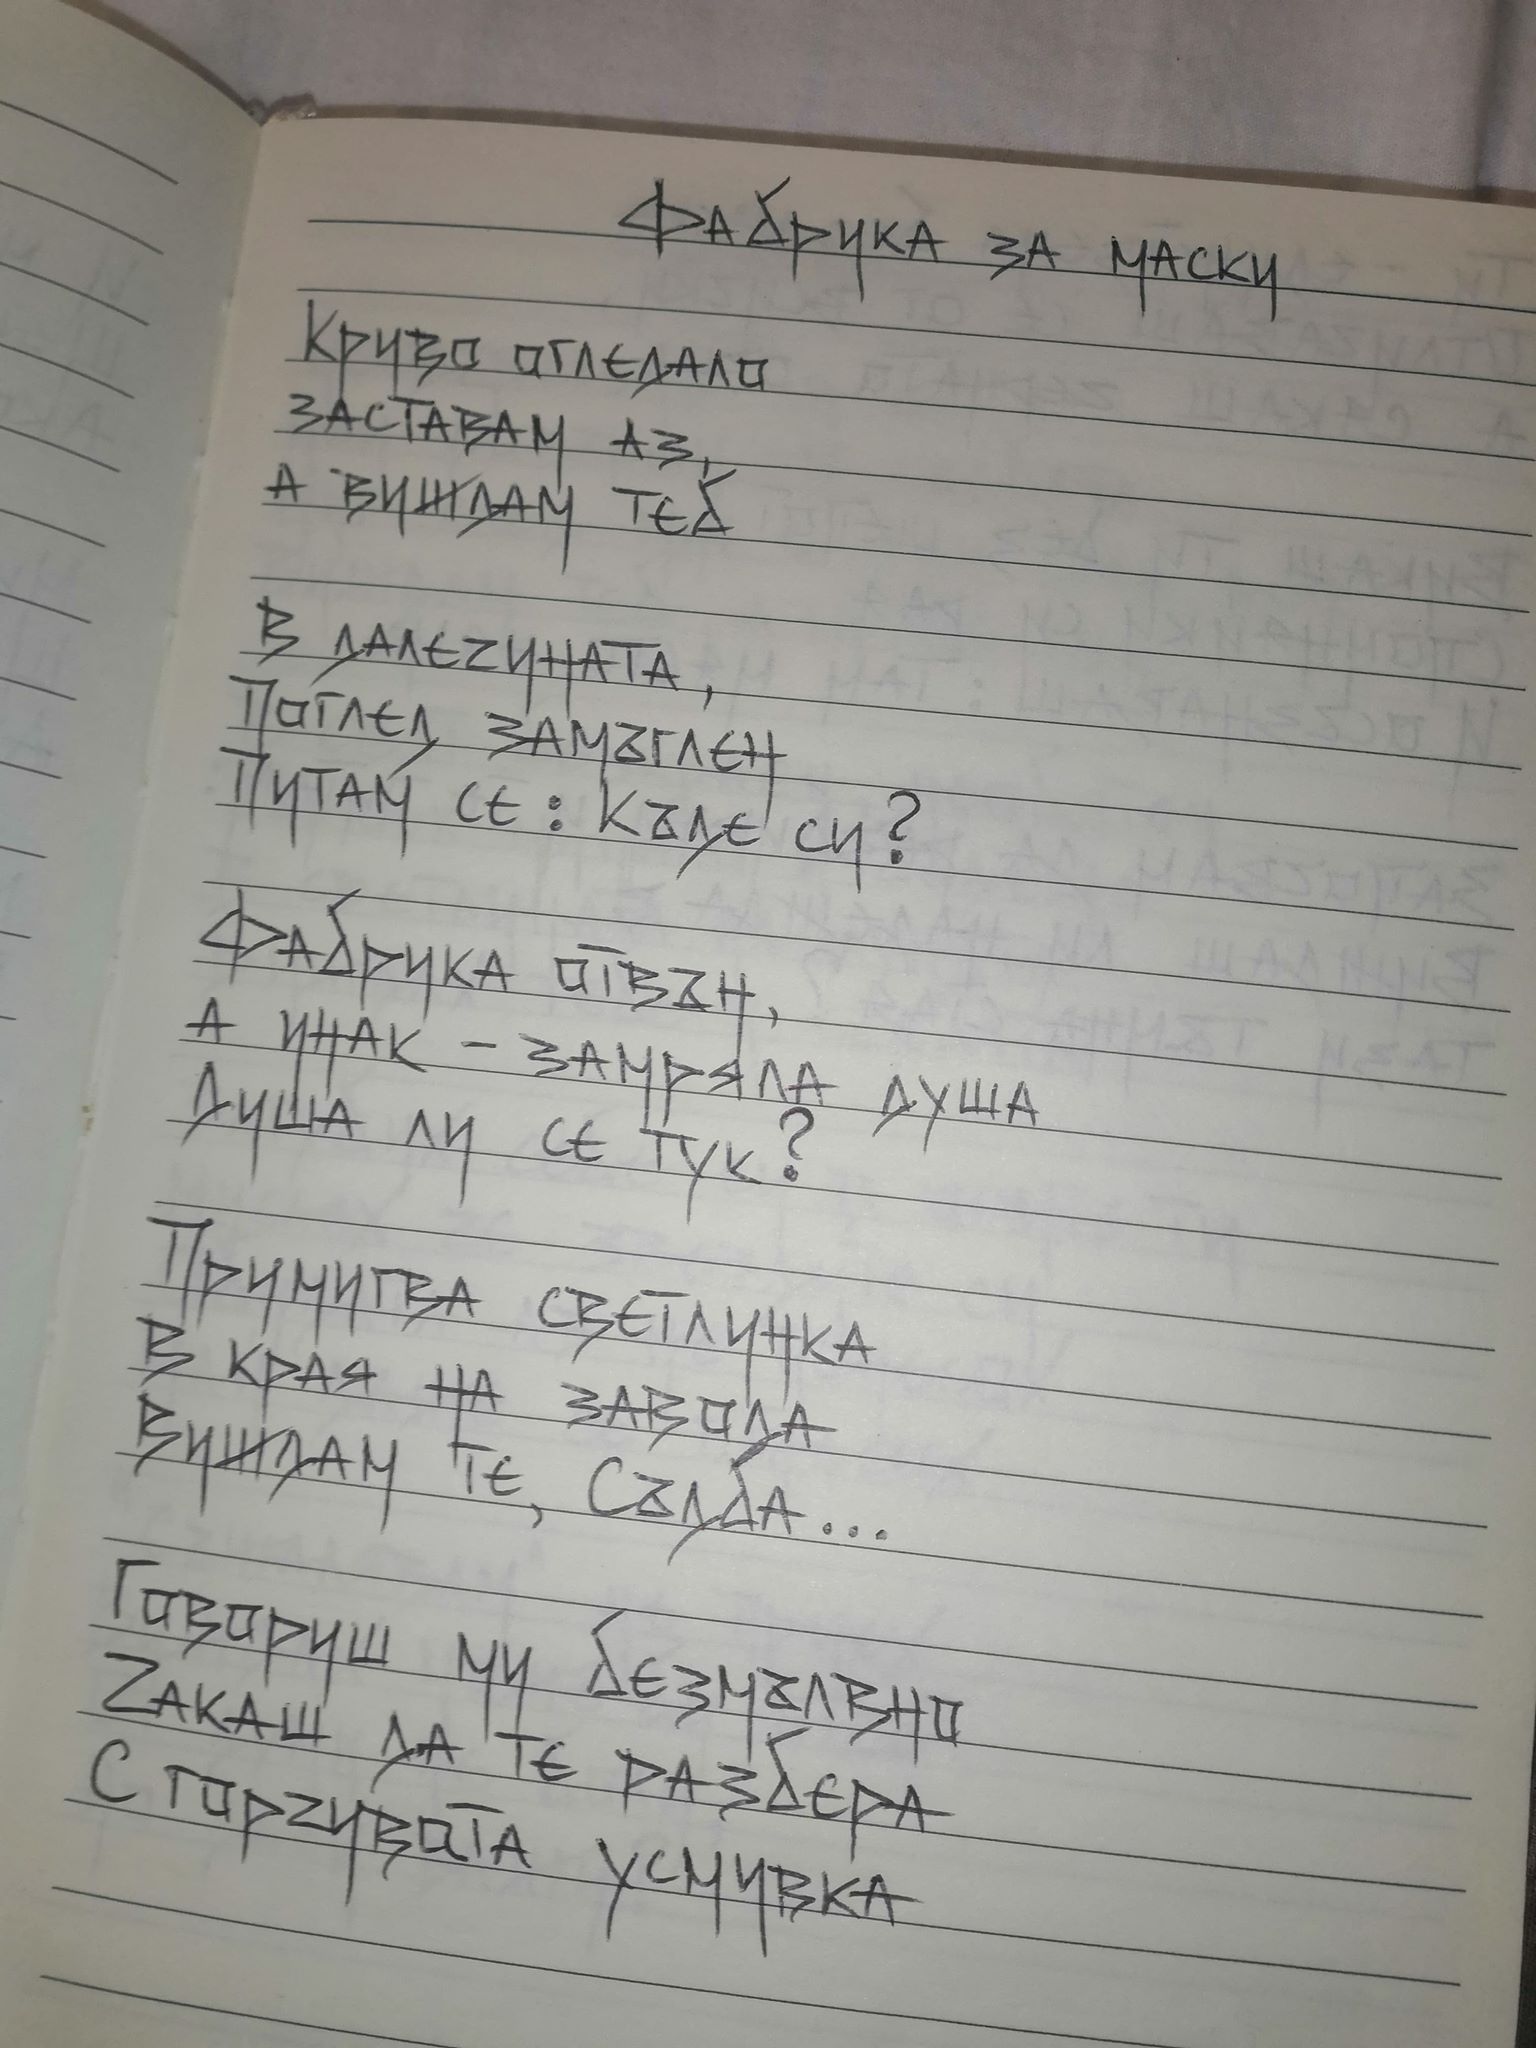 Фабрика за маски
Криво огледало
заставам аз,
а виждам теб
В далечината,
Поглед замъглен
Питам се: Къде си?
Фабрика отвън,
А инак - замряла душа
Душа ли се тук?
Примигва светлинка
В края на завода
Виждам те, Съдба...
Говориш ми безмълвно
Чакаш да те разбера
С горчивата усмивка